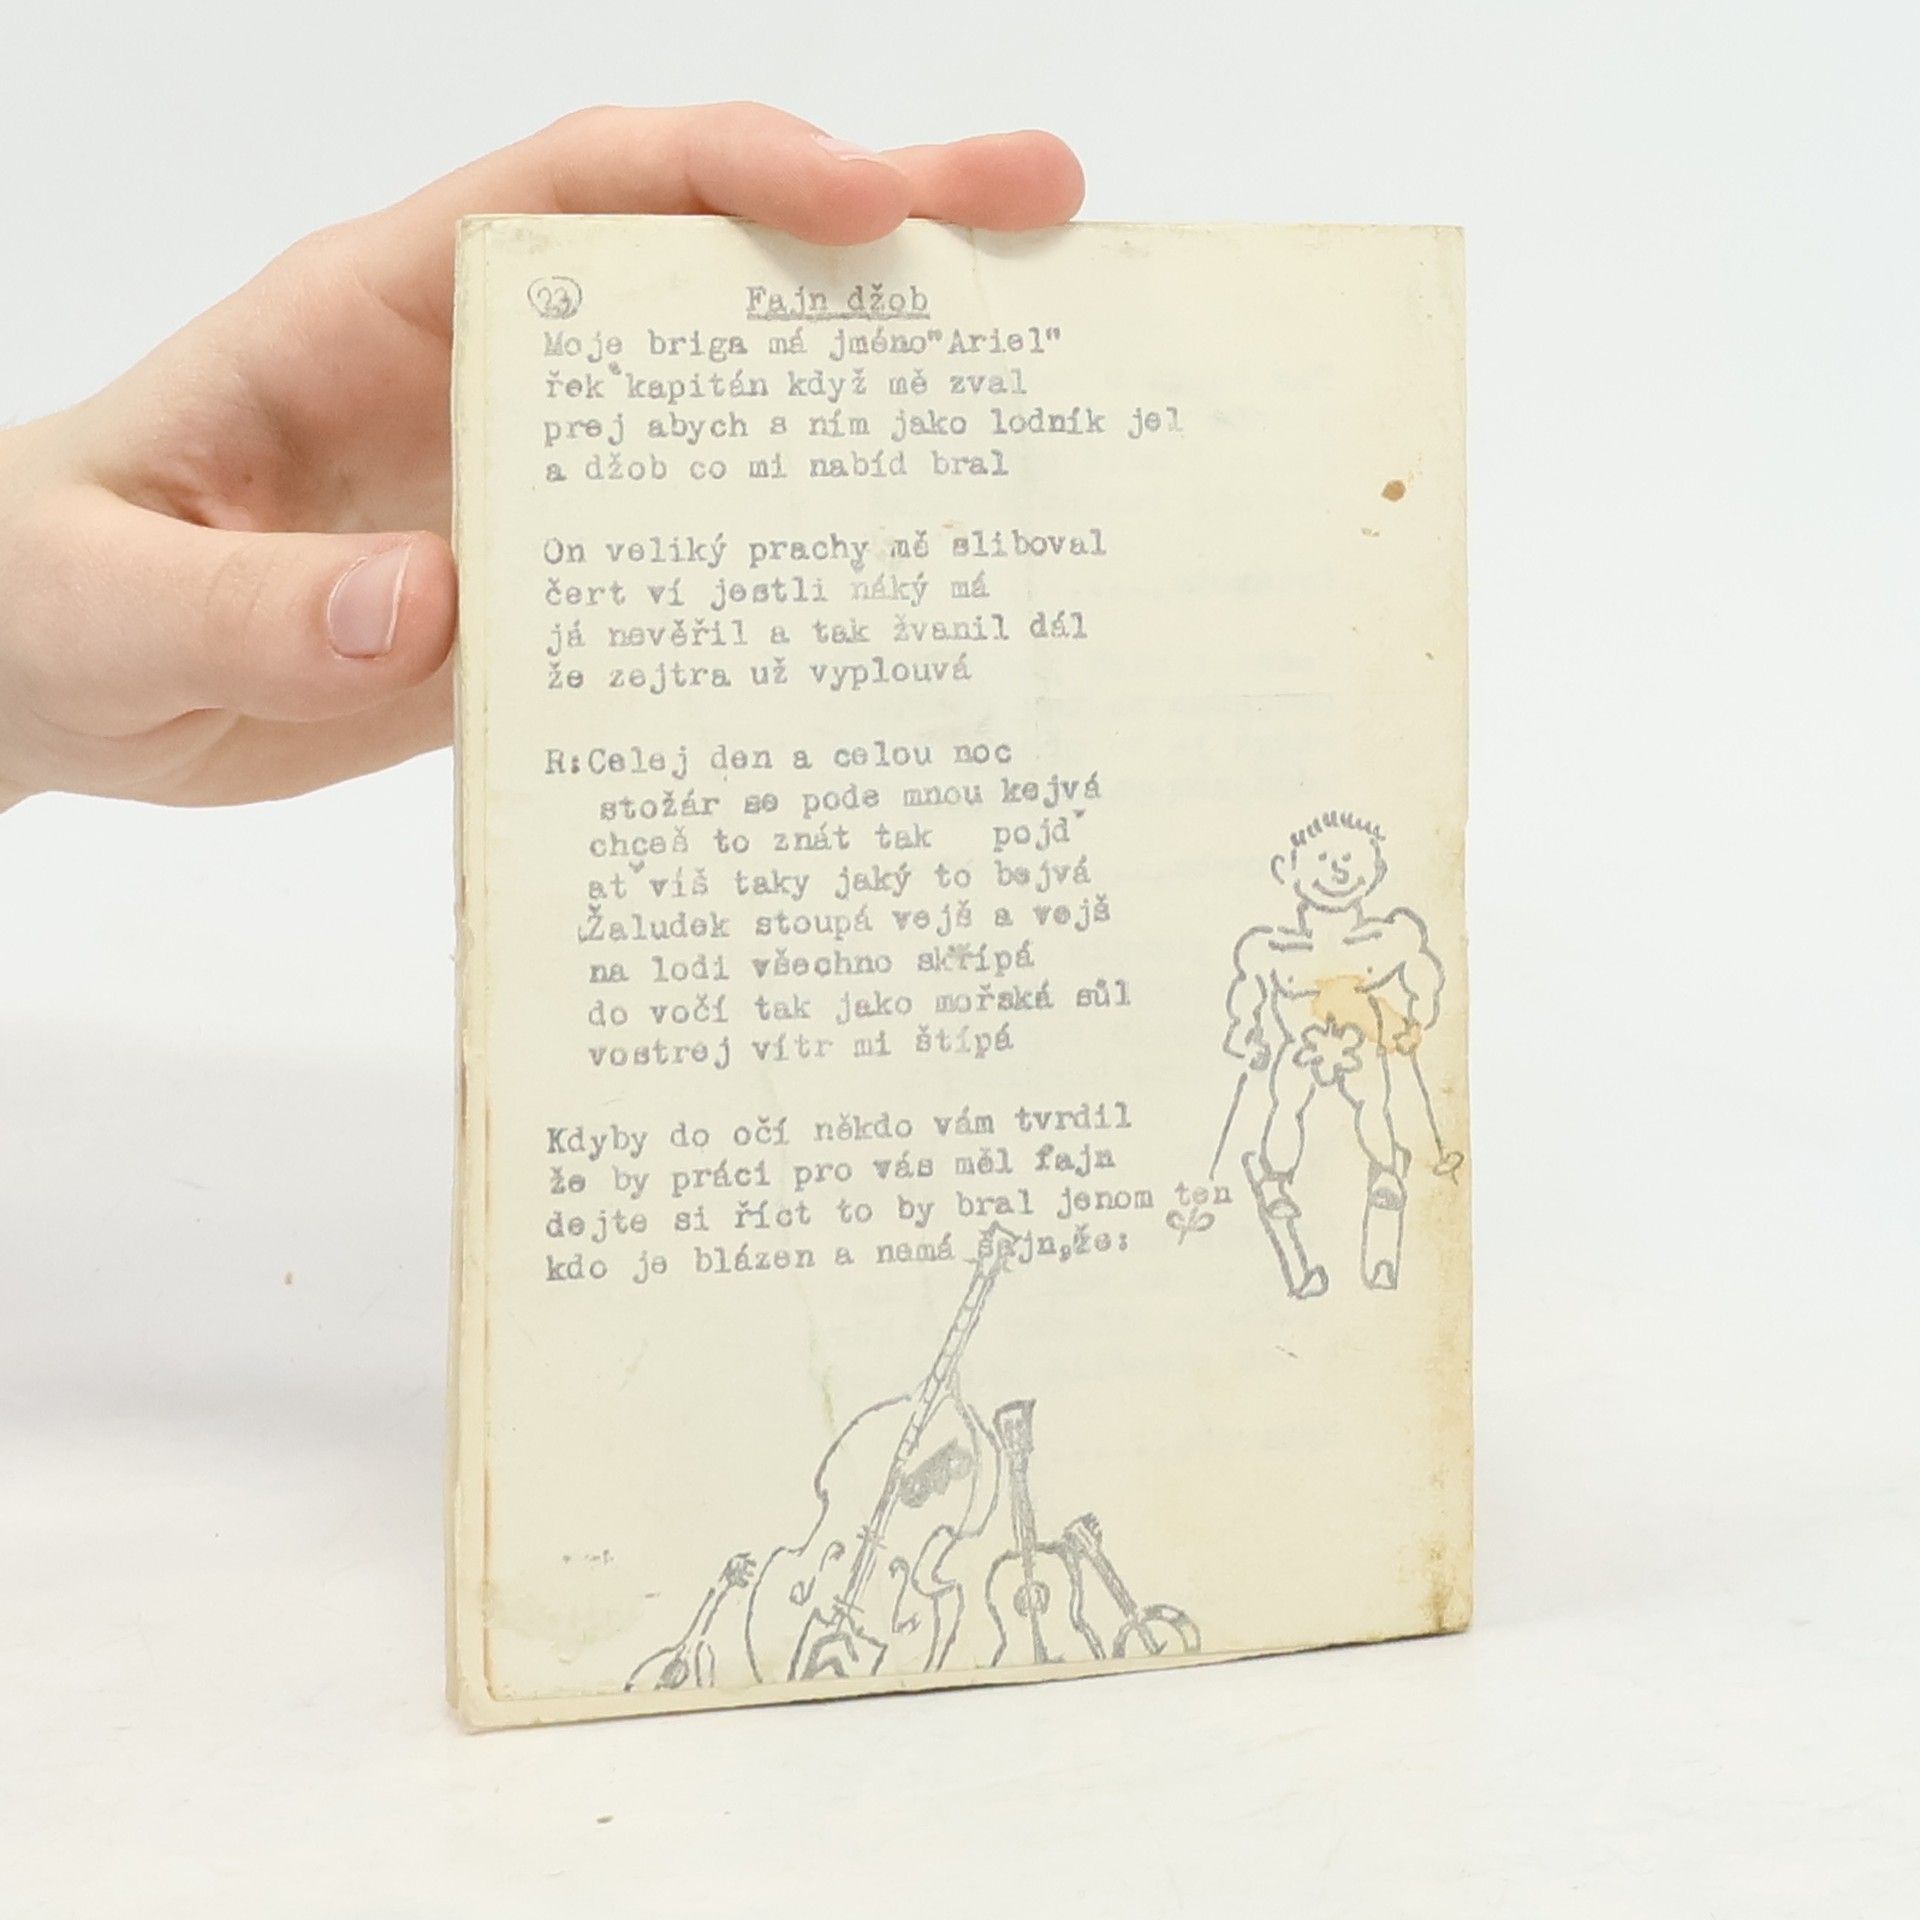 23
Fajn džob
Moje briga má jméno"Ariel"
řek kapitán když mě zval
prej abych s ním jako lodník jel
a džob co mi nabíd bral
On veliký prachy mě sliboval
čert ví jestli náký má
já nevěřil a tak žvanil dál
že zejtra už vyplouvá
R:Celej den a celou noc
stožár se pode mnou kejvá
chceš to znát tak pojdˇ
atˇ víš taky jaký to bejvá
Žaludek stoupá vejš a vejš
na lodi všechno skřípá
do vočí tak jako mořská sůl
vostrej vítr mi štípá
Kdyby do očí někdo vám tvrdil
že by práci pro vás měl fajn
dejte si říct to by bral jenom ten
kdo je blázen a nemá šajn,že: